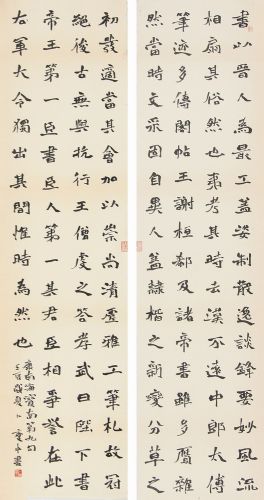 書以晉人為最工蓋姿制散逸談鋒要妙風流
相扇其俗然也夷考其時去漢不遠中郎太傅
筆迹多傳閣帖王謝桓郗及諸帝書雖多贋雜
然當時文采固自異人蓋隸楷之新變分草之
初發適當其會加以崇尚清虛雅工筆札故冠
絕後古無與抗行王僧虔之答孝武曰陛下書
帝王第一臣書臣人第一其君臣相爭譽在此
右軍大令獨出其間惟時為然也
康南海寶南第九句